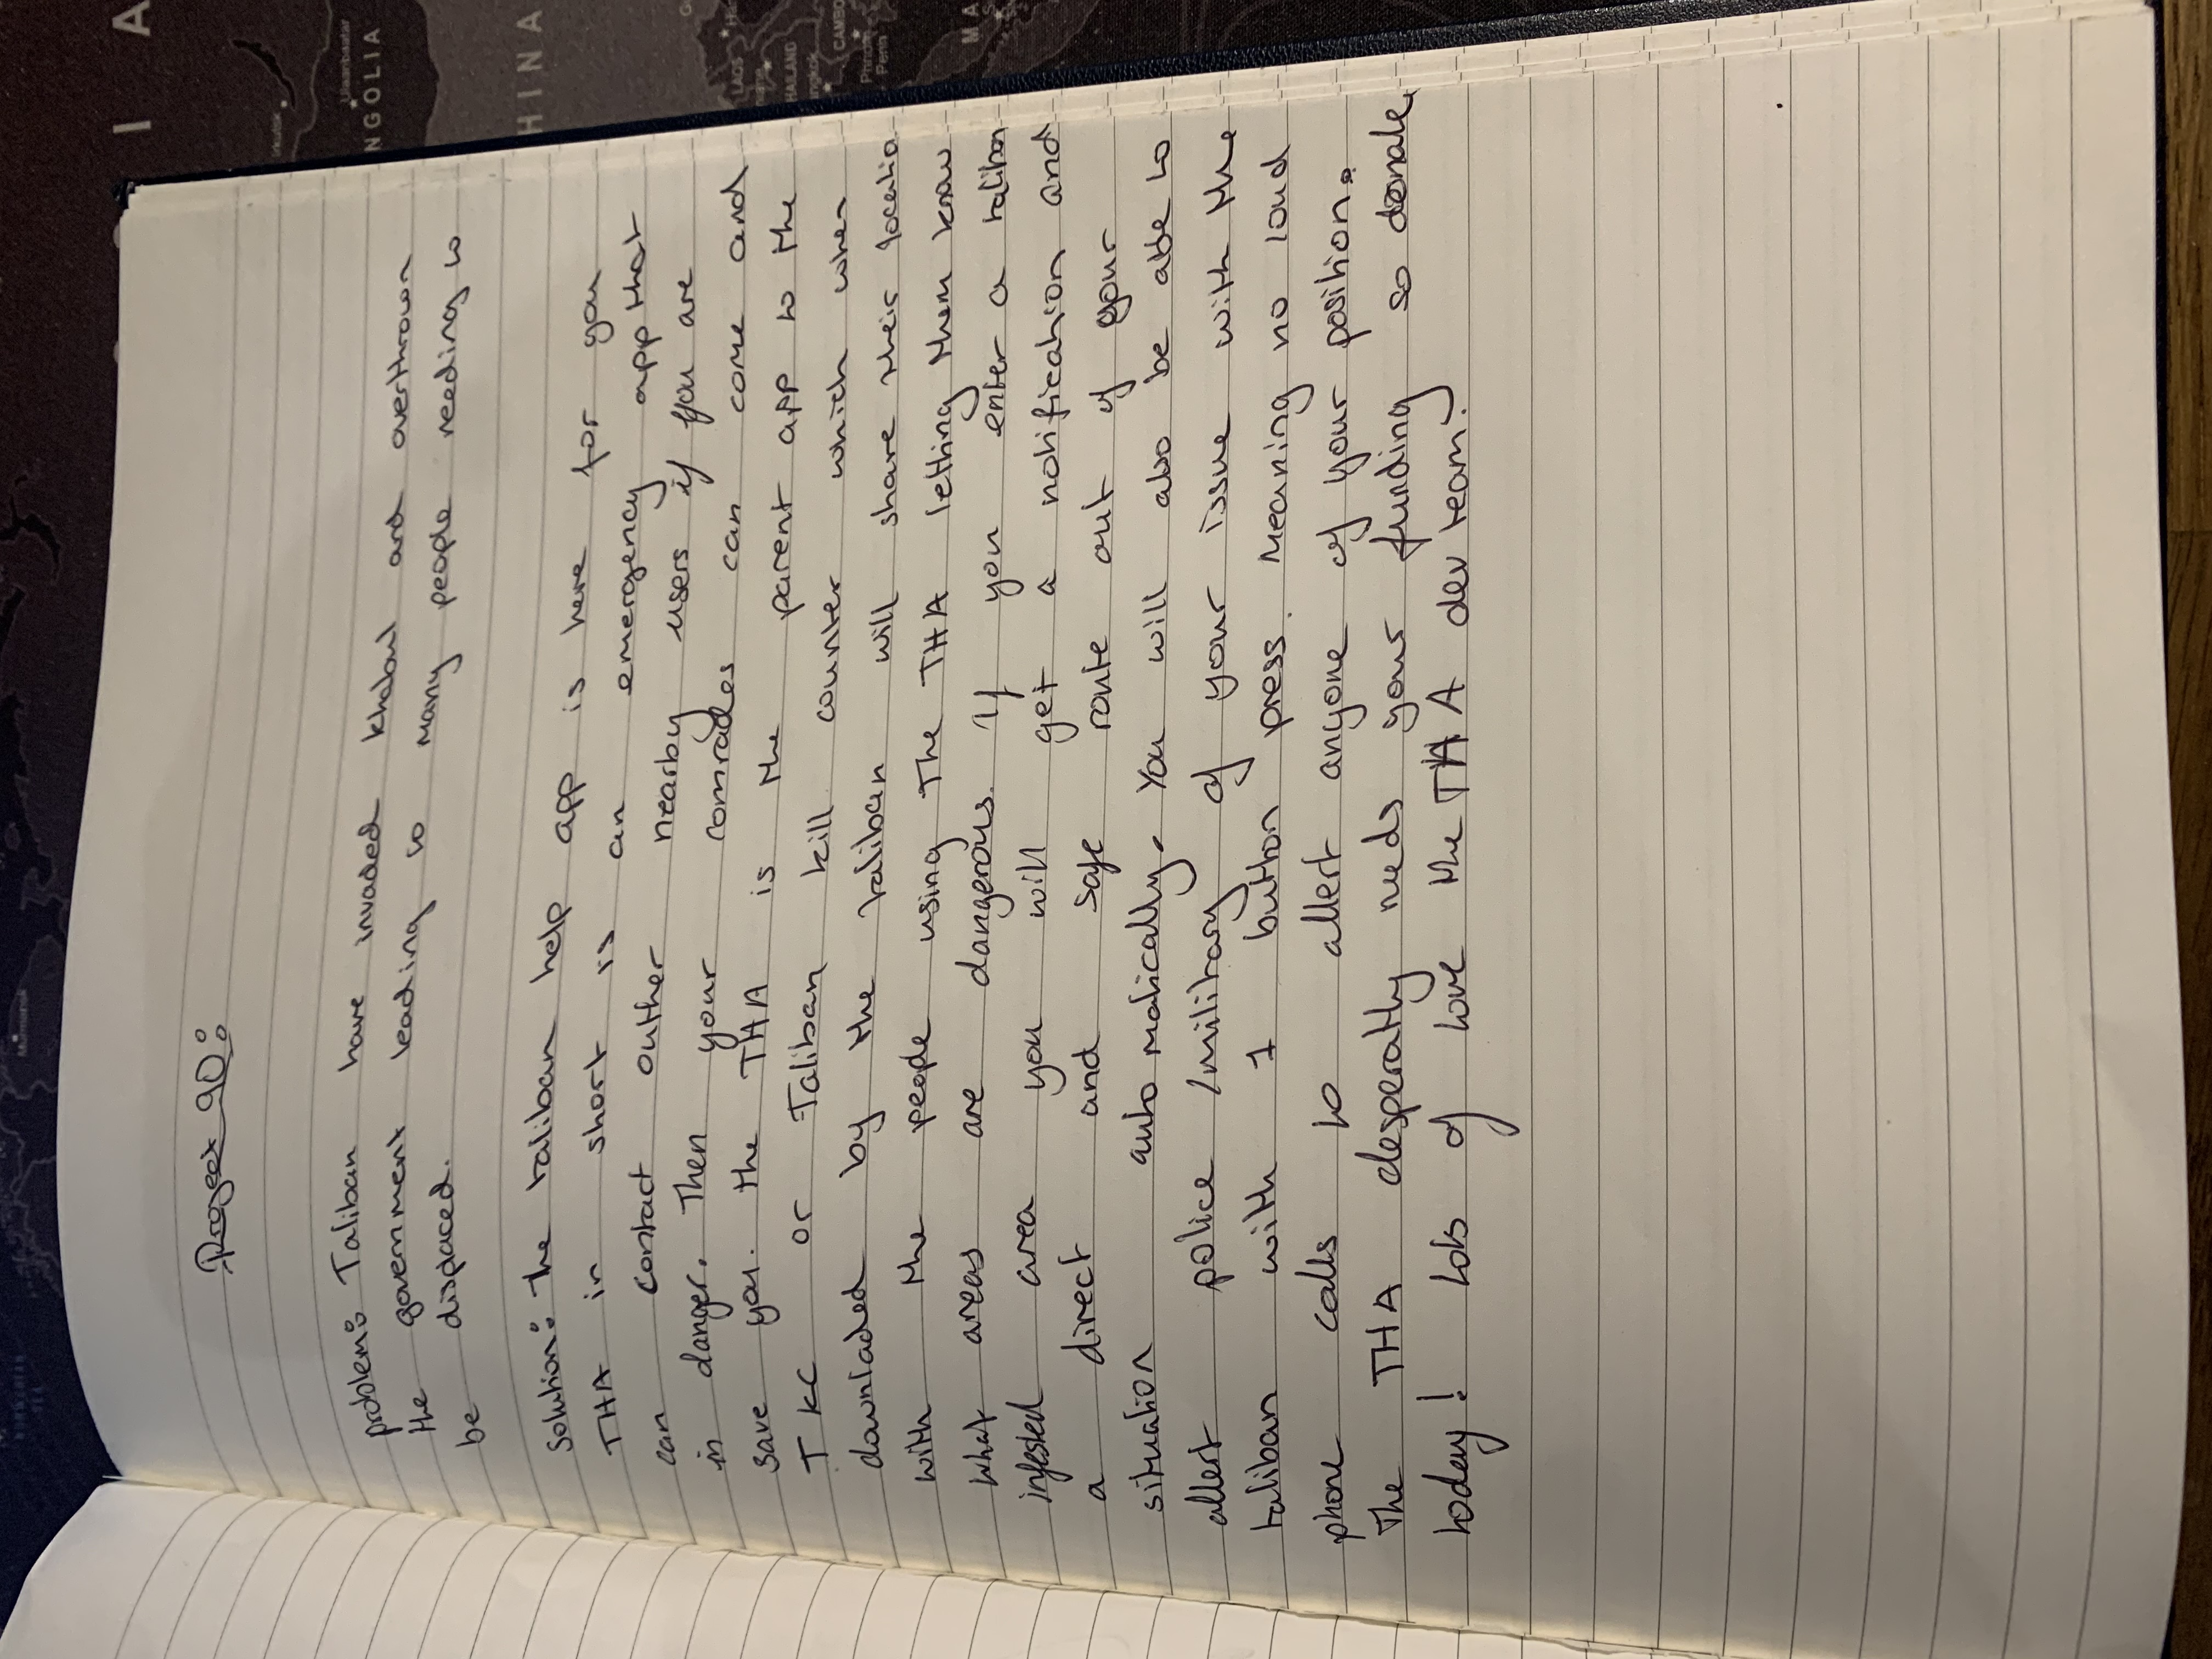 Project 90:
problem: Taliban have invaded khabul and overthrown
the government leading to many people needing to
be displaced.
Solution: The taliban help app is here for you
THA in short is an emergency app that
can contact outher nearby users if you are
in danger. Then your comrades can come and
save you. the THA is the parent app to the
TKC or Taliban kill counter which when
downladed by the taliban will share their locatio
with the people using The THA letting them know
what areas are dangerous. If you enter a taliban
infested area you will get a notification and
a direct and safe route out of your
situation automatically. You will also be able to
allert police /military of your issue with the
taliban with 1 button press. Meaning no loud
phone calls to allert anyone of your position.
The THA desperatly needs your funding so donate
today! Lots of love the THA dev team.
Murmansk
I A
Irkutsk
Ulaanbaatar
NGOLIA
HINA
LAOS
HAILAND
angkok
CAMBO
Phnom
Penh
MA